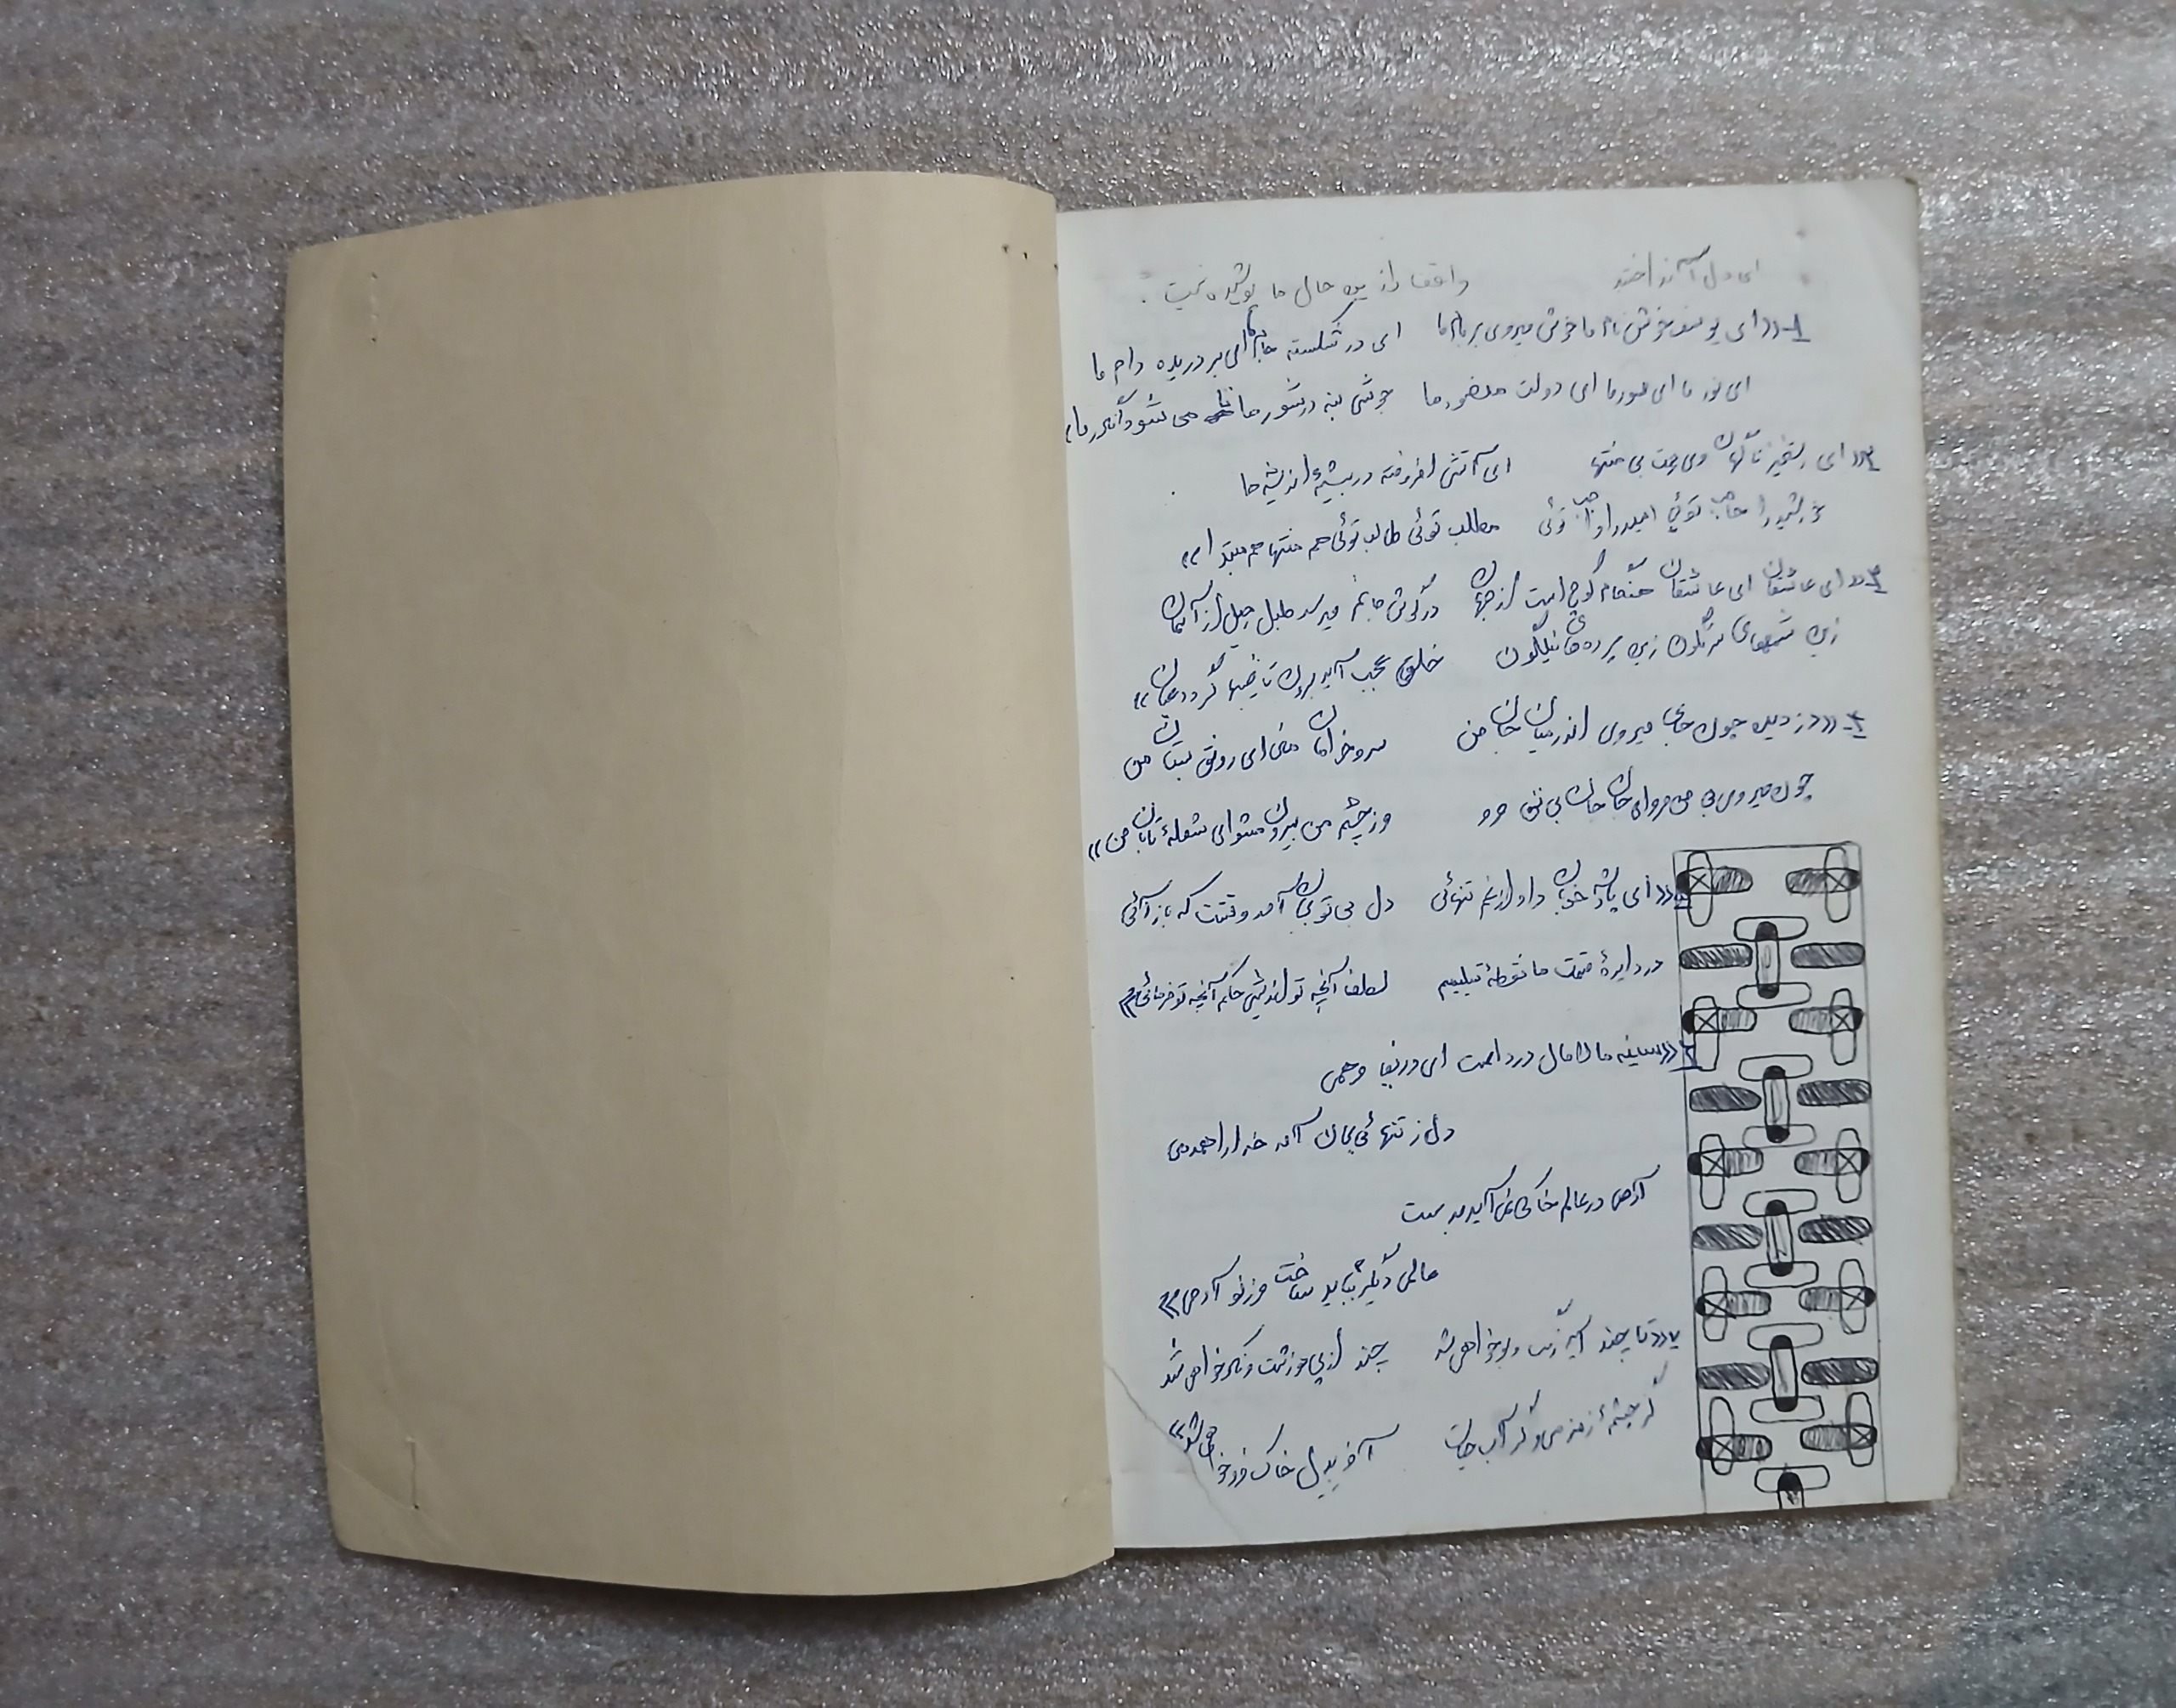 ای دل آ
واقف از حال ما پوشیده نیست.
۱-((ای یوسف خوش نام ما خوش میروی بر بام ما ای در شکسته جام ما ای بر دریده دام ما
ای نور ما ای سور ما ای دولت منصور ما جوشی بنه در شور ما تا می شود انگور ما))
۲-((ای رستخیز ناگهان وی رحمت بی منتها ای آتش افروخته در بیشهٔ اندیشه ها
خورشید را حاجب توئی امید را واجب توئی مطلب توئی طالب توئی هم منتها هم مبتدا))
۳-((ای عاشقان ای عاشقان هنگام کوچ است از جهان در گوش جانم میرسد طبل رحیل از آسمان
زین شمعهای سرنگون زین پرده های نیلگون خلقی عجب آید برون تا غیبها گردد عیان))
۴-((دزدیده چون جان میروی اندر میان جان من سرو خرامان منی ای رونق بستان من
چون میروی بی من مرو ای جان جان بی تن مرو وز چشم من بیرون مشو ای شعلهٔ تابان من))
۵-((ای پادشه خوبان داد از غم تنهائی دل بی تو بجان آمد وقتست که باز آئی
در دایرهٔ قسمت ما نقطهٔ تسلیمیم لطف آنچه تو اندیشی حکم آنچه تو فرمائی))
۶-((سینه مالامال درد است ای دریغا مرهمی
دل ز تنهائی بجان آمد خدا را همدمی
آدمی در عالم خاکی نمی آید بدست
عالمی دیگر بباید ساخت وز نو آدمی))
۷-((تا چند اسیر رنگ و بو خواهی شد چند از پی هر زشت و نکو خواهی شد
گر چشمهٔ زمزمی و گر آب حیات آخر بدل خاک فرو خواهی شد))